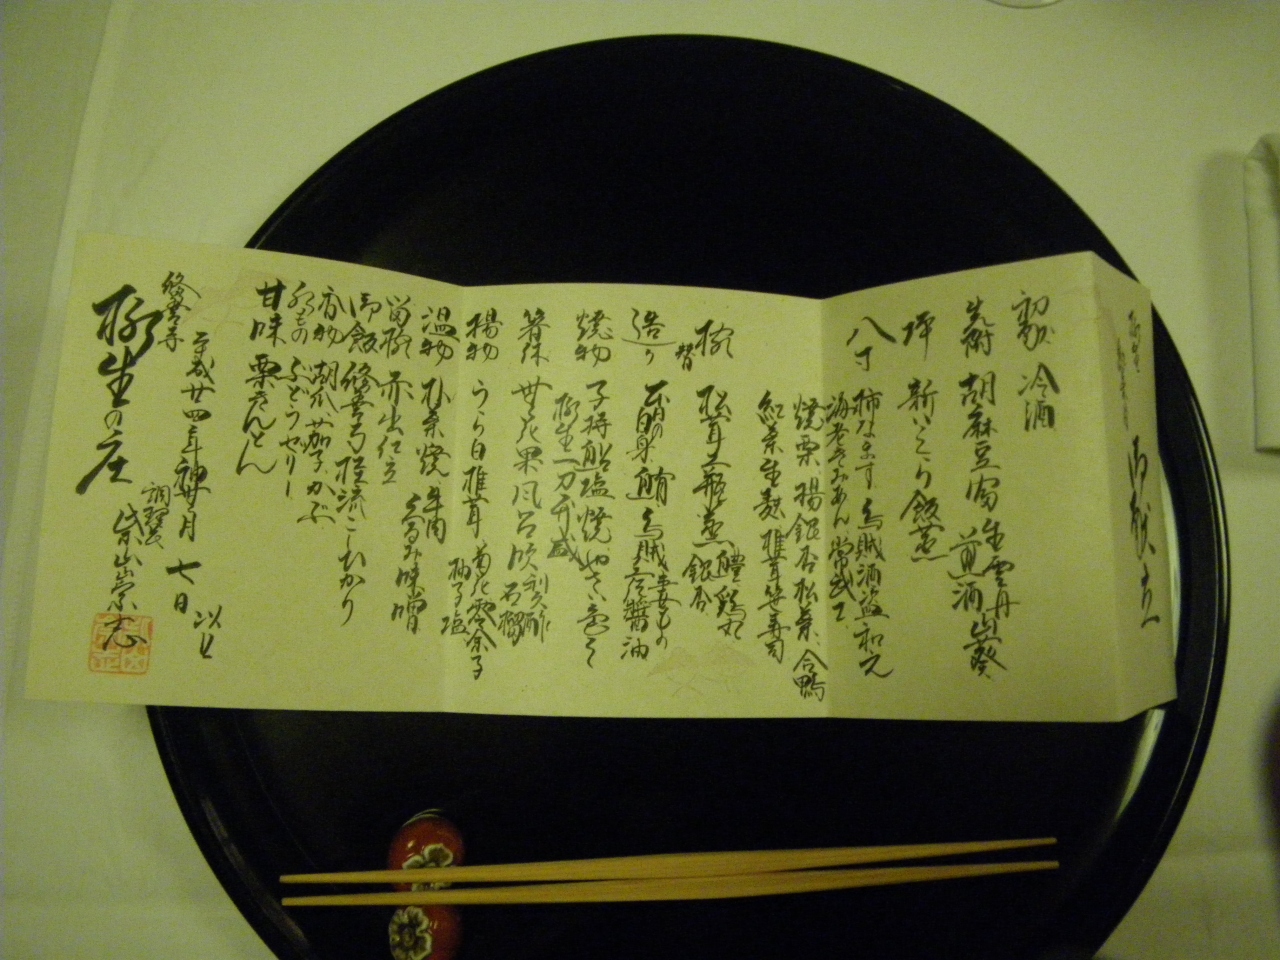 御献立
初献 冷酒
先附 胡麻豆腐 生雲丹 山葵
煎酒
坪 新いくら飯蒸
八寸 柿なます 烏賊酒盗和え
海老きみあん
焼栗 揚銀杏 松葉 合鴨
紅葉生麩 椎茸 笹寿司
椀替 松茸土瓶蒸 鱧 鶏丸
銀杏
造り 白身 鮪 烏賊 妻もの
醤油
焼物 子持鮎塩焼
柳生一刀干
箸休 無花果風呂吹 利久酢
石榴
揚物 うら白椎茸 菊花 零余子
柚子塩
温物 朴葉焼 牛肉
くるみ味噌
留椀 赤出仕立
御飯 修善寺桂流こしひかり
香物 潮瓜 茄子 かぶ
水もの ぶどうゼリー
甘味 栗きんとん
平成廿四年神無月 七日 以上
修善寺
調理長 柴山崇志
柳生の庄